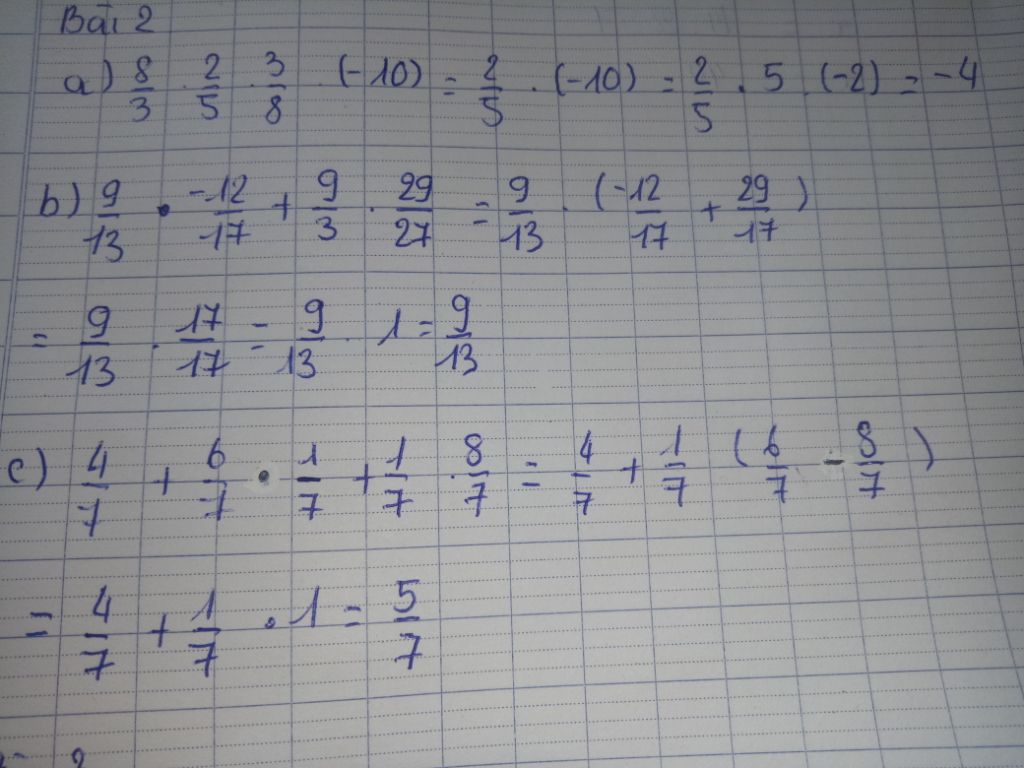 Bài 2
a) 8/3 . 2/5 . 3/8 . (-10) = 2/5 . (-10) = 2/5 . 5 . (-2) = -4
b) 9/13 . -12/17 + 9/3 . 29/27 = 9/13 . (-12/17 + 29/17)
= 9/13 . 17/17 = 9/13 . 1 = 9/13
c) 4/7 + 6/7 . 1/7 + 1/7 . 8/7 = 4/7 + 1/7 (6/7 - 8/7)
= 4/7 + 1/7 . 1 = 5/7